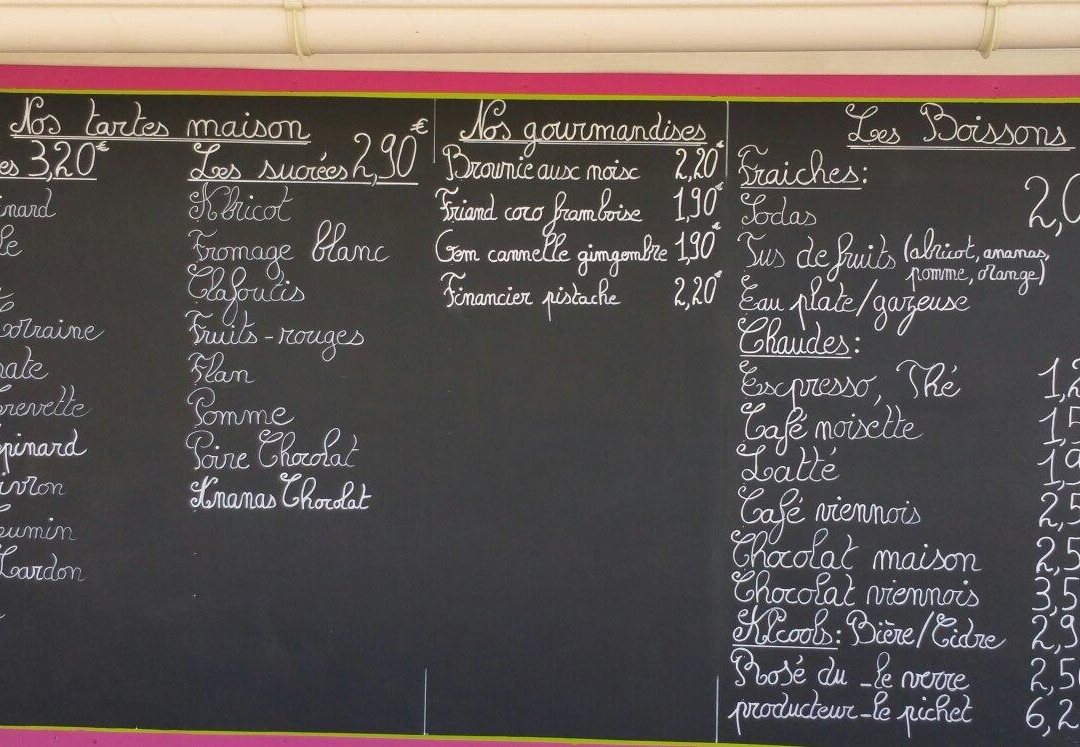 Nos tartes maison
es 3,20€
nard
le
orraine
ate
revette
pinard
ivron
umin
Lardon
Les sucrées 2,90€
Abricot
Fromage blanc
Clafoutis
Fruits-rouges
Flan
Pomme
Poire Chocolat
Ananas Chocolat
Nos gourmandises
Brownie aux noix 2,20€
Friand coco framboise 1,90€
Com cannelle gimgembre 1,90€
Financier pistache 2,20€
Les Boissons
Fraiches:
Sodas 2,0
Jus de fruits (abricot, ananas,
pomme, orange)
Eau plate/gazeuse
Chaudes:
Espresso, Thé 1,2
Café noisette 1,5
Latté 1,9
Café viennois 2,5
Chocolat maison 2,5
Chocolat viennois 3,5
Alcools: Bière/Cidre 2,9
Rosé du _le verre 2,50
producteur_le pichet 6,2